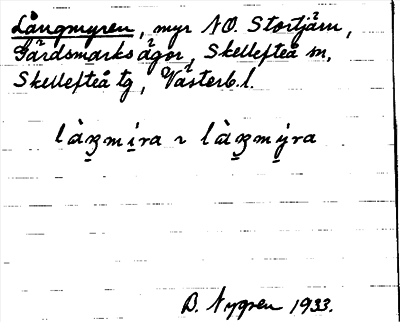 Långmyren, myr NO. Stortjärn,
Gärdsmarks ägor, Skellefteå sn,
Skellefteå tg, Västerb. l.
làŋmira ~ làŋmýra
B. Nygren 1933.